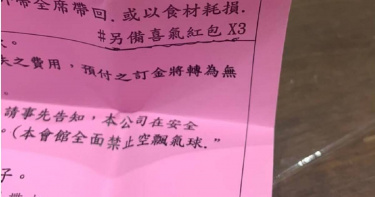 帶全席帶回.或以食材耗損.
#另備喜氣紅包 X3
失之費用，預付之訂金將轉為無
請事先告知，本公司在安全
。(本會館全面禁止空飄氣球.”
子。